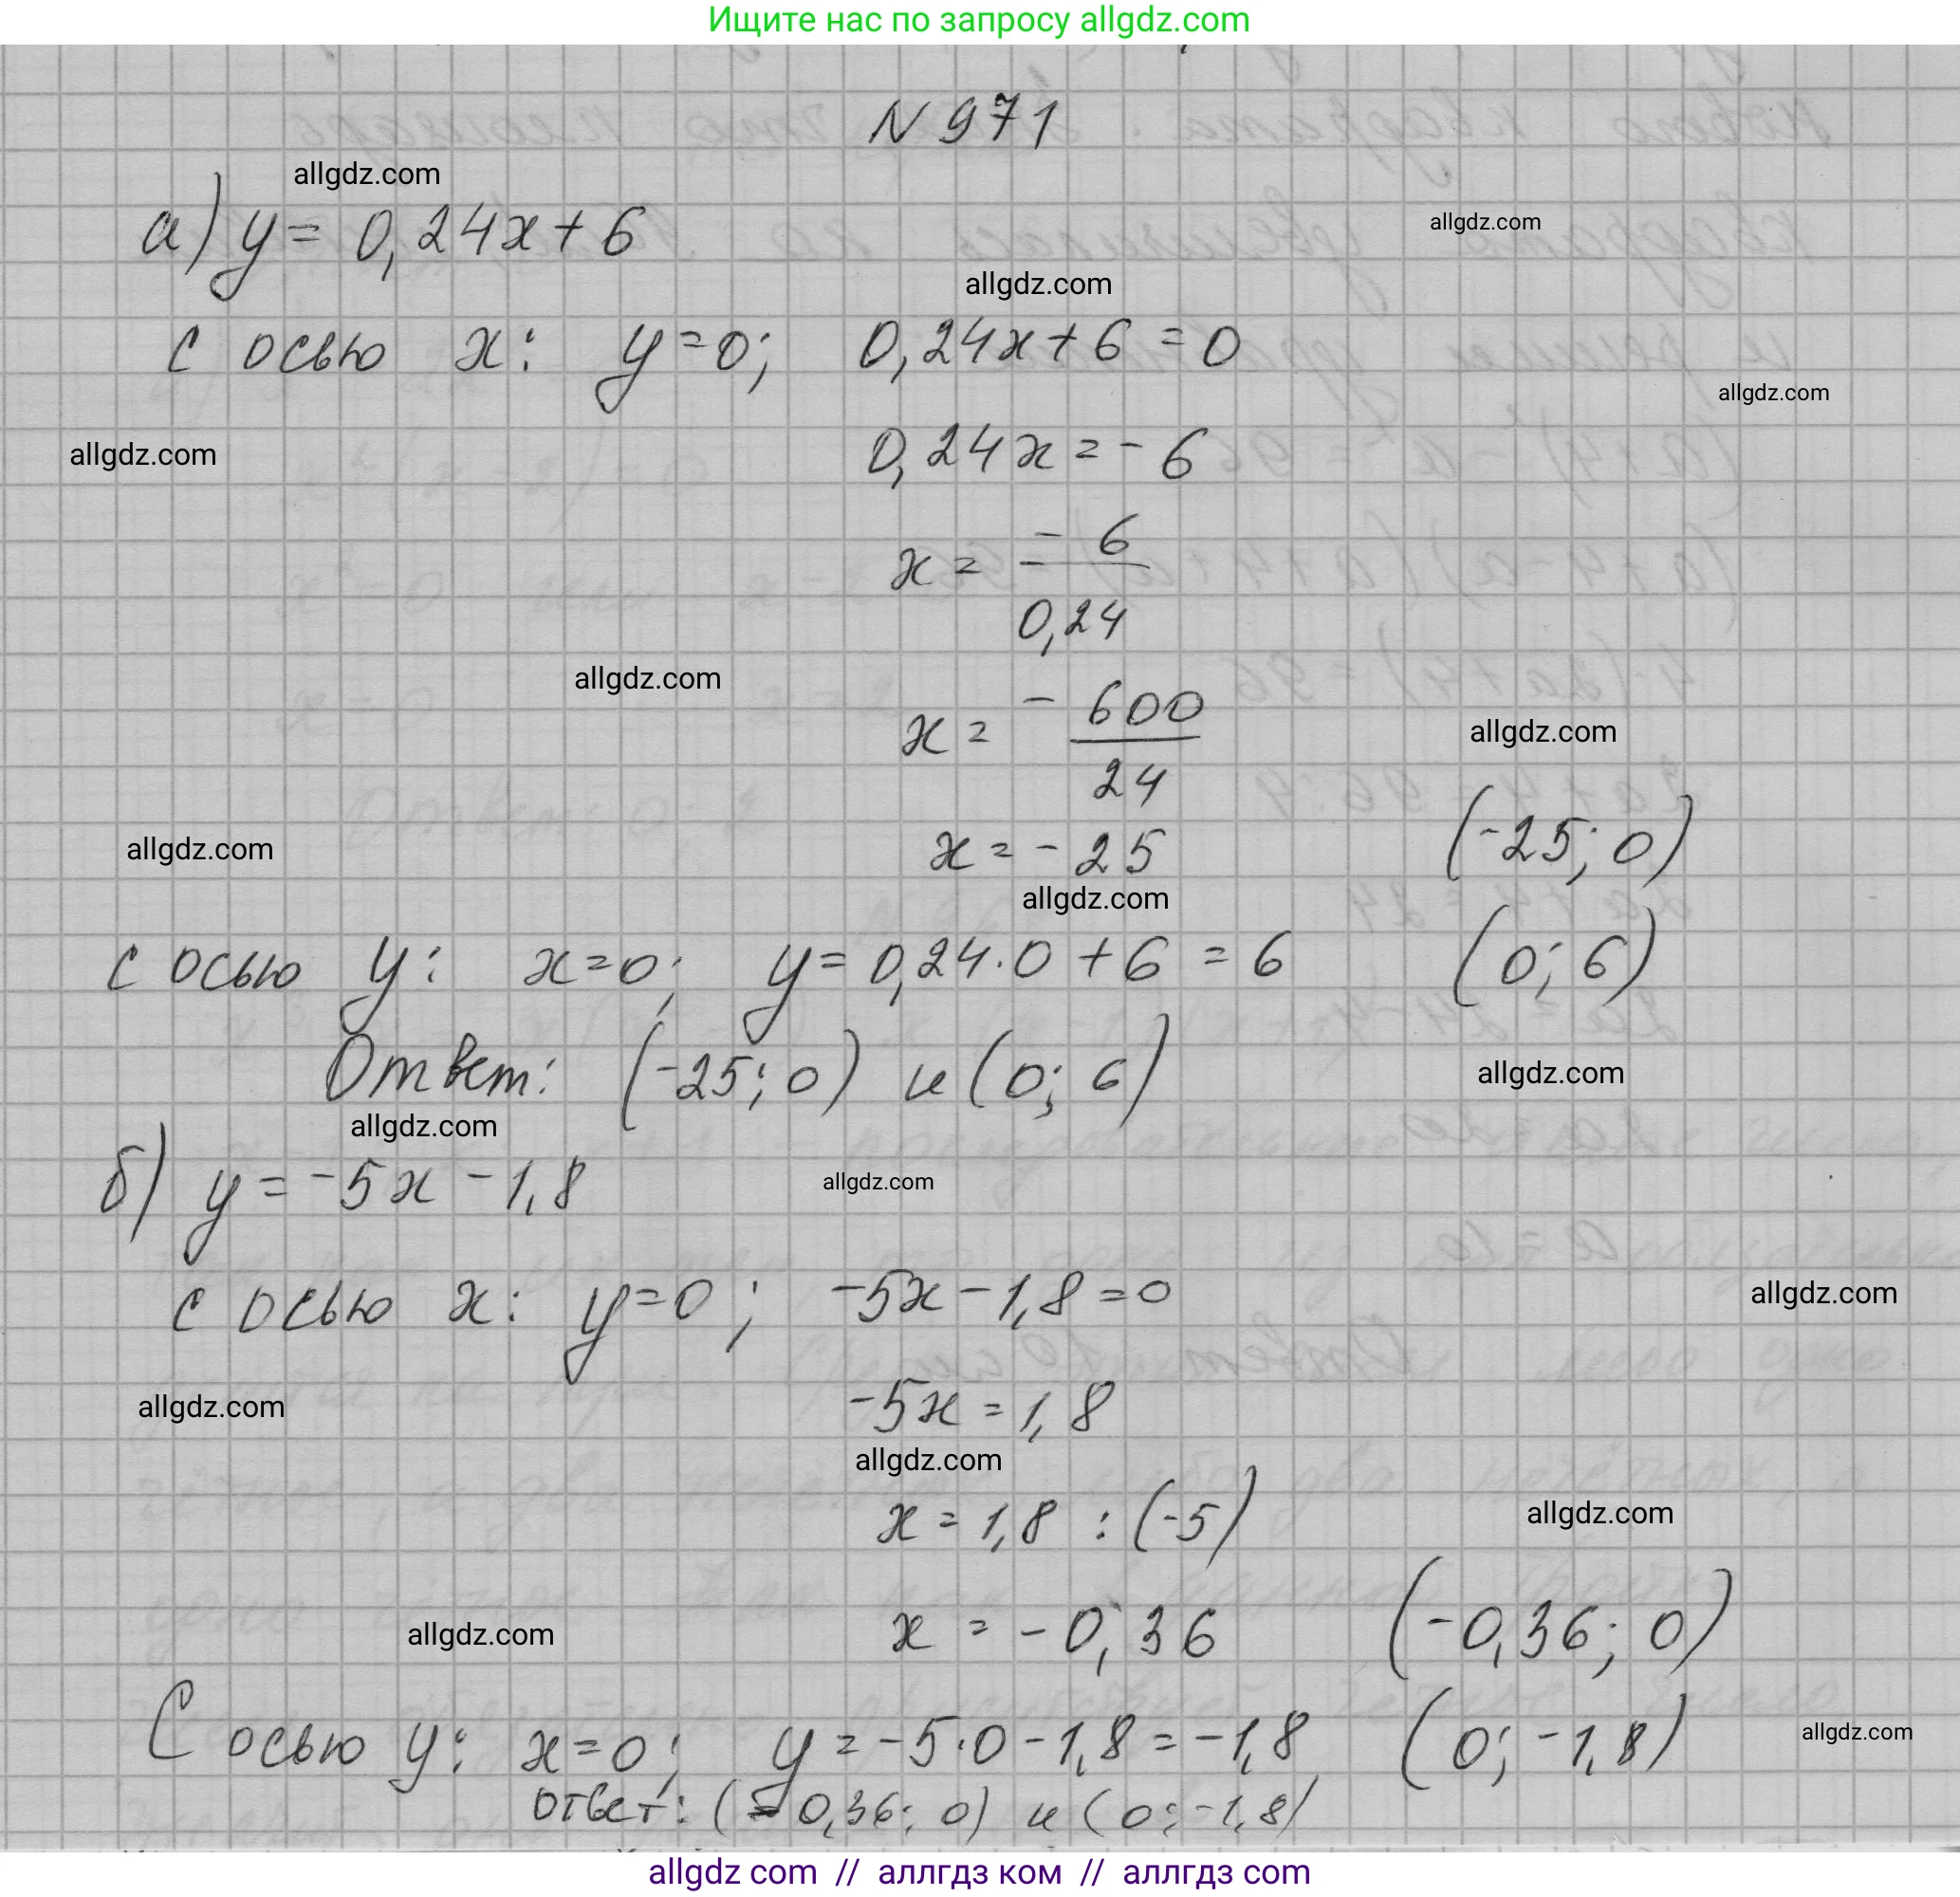 Ищите нас по запросу allgdz.com
N 971
allgdz.com
а) y = 0,24x + 6
allgdz.com
allgdz.com
с осью x: y=0; 0,24x + 6 = 0
allgdz.com
allgdz.com
0,24x = - 6
x = - 6 / 0,24
allgdz.com
x = - 600 / 24
allgdz.com
allgdz.com
x = - 25 (-25; 0)
allgdz.com
с осью y: x=0; y = 0,24·0 + 6 = 6 (0; 6)
Ответ: (-25; 0) и (0; 6)
allgdz.com
allgdz.com
б) y = -5x - 1,8
allgdz.com
с осью x: y=0; -5x - 1,8 = 0
allgdz.com
-5x = 1,8
allgdz.com
allgdz.com
x = 1,8 : (-5)
allgdz.com
x = - 0,36 (-0,36; 0)
allgdz.com
С осью y: x=0; y = -5·0 - 1,8 = -1,8 (0; -1,8)
allgdz.com
ответ: (-0,36; 0) и (0; -1,8)
allgdz com // аллгдз ком // аллгдз com